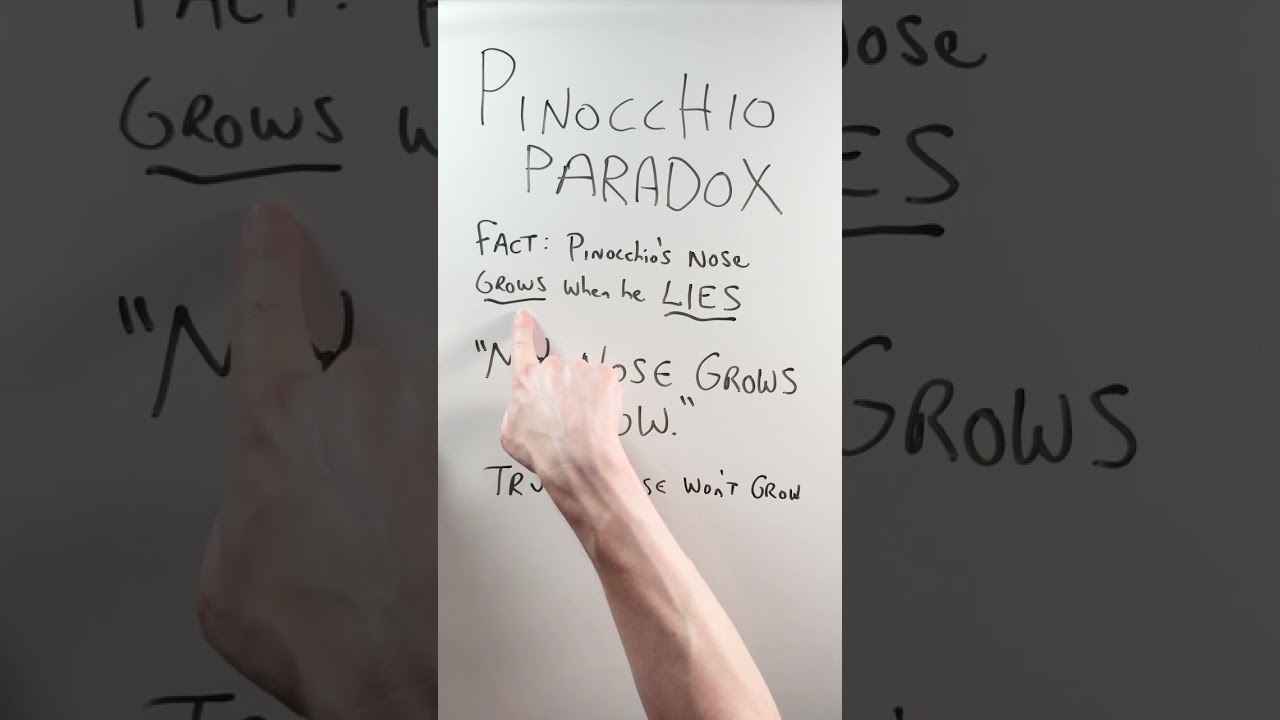 PINOCCHIO
PARADOX
FACT: PINOCCHIO'S NOSE
GROWS when he LIES
"MY NOSE GROWS
NOW."
WON'T GROW